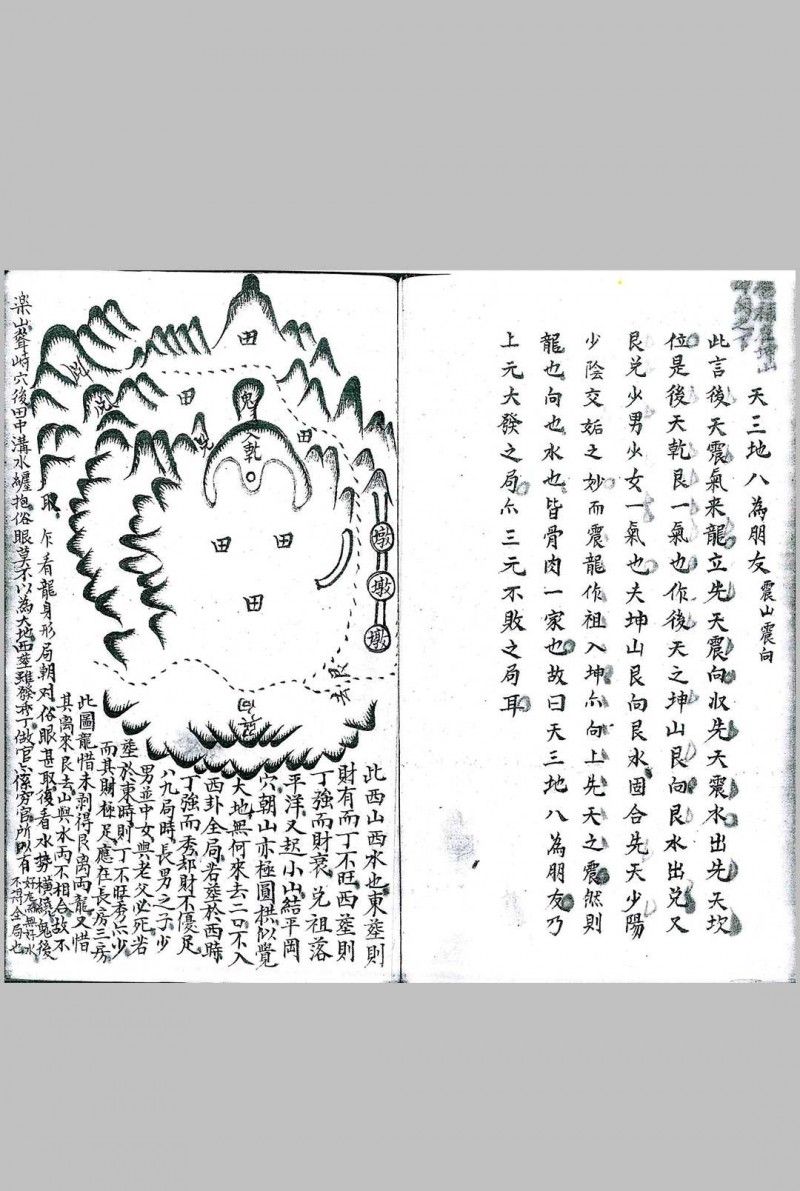 天三地八為朋友 震山震向
此言後天震氣来龍立先天震向收先天震水出先天坎
位是後天乾艮一氣也作後天之坤山艮向艮水出兌又
艮兌少男少女一氣也夫坤山艮向艮水固合先天少陽
少陰交姤之妙而震龍作祖入坤亦向上先天之震然則
龍也向也水也皆骨肉一家也故曰天三地八為朋友乃
上元大發之局亦三元不敗之局耳
田
田
鬼
田
入乾
田
田
田
墩
墩
墩
艮
此西山西水也東塟則
財有而丁不旺西塟則
丁強而財衰兌祖落
平洋又起小山結平岡
穴朝山亦極圓拱似覺
大地無何來去二口不入
西卦全局若塟於西時
丁強而秀却財不優足
八九局時長男之子少
男並中女與老父必死若
塟於東時則丁不旺秀亦少
而其財極足應在長房三房
此圖龍惜未剥得艮离兩龍又惜
其离來艮去山與水兩不相合故不
取 乍看龍身形局朝対俗眼甚取後看水势橫繞鬼後
楽山聳峙穴後田中溝水纏抱俗眼莫不以為大地西塟雖發秀丁做官亦窮官所以有
不得全局也